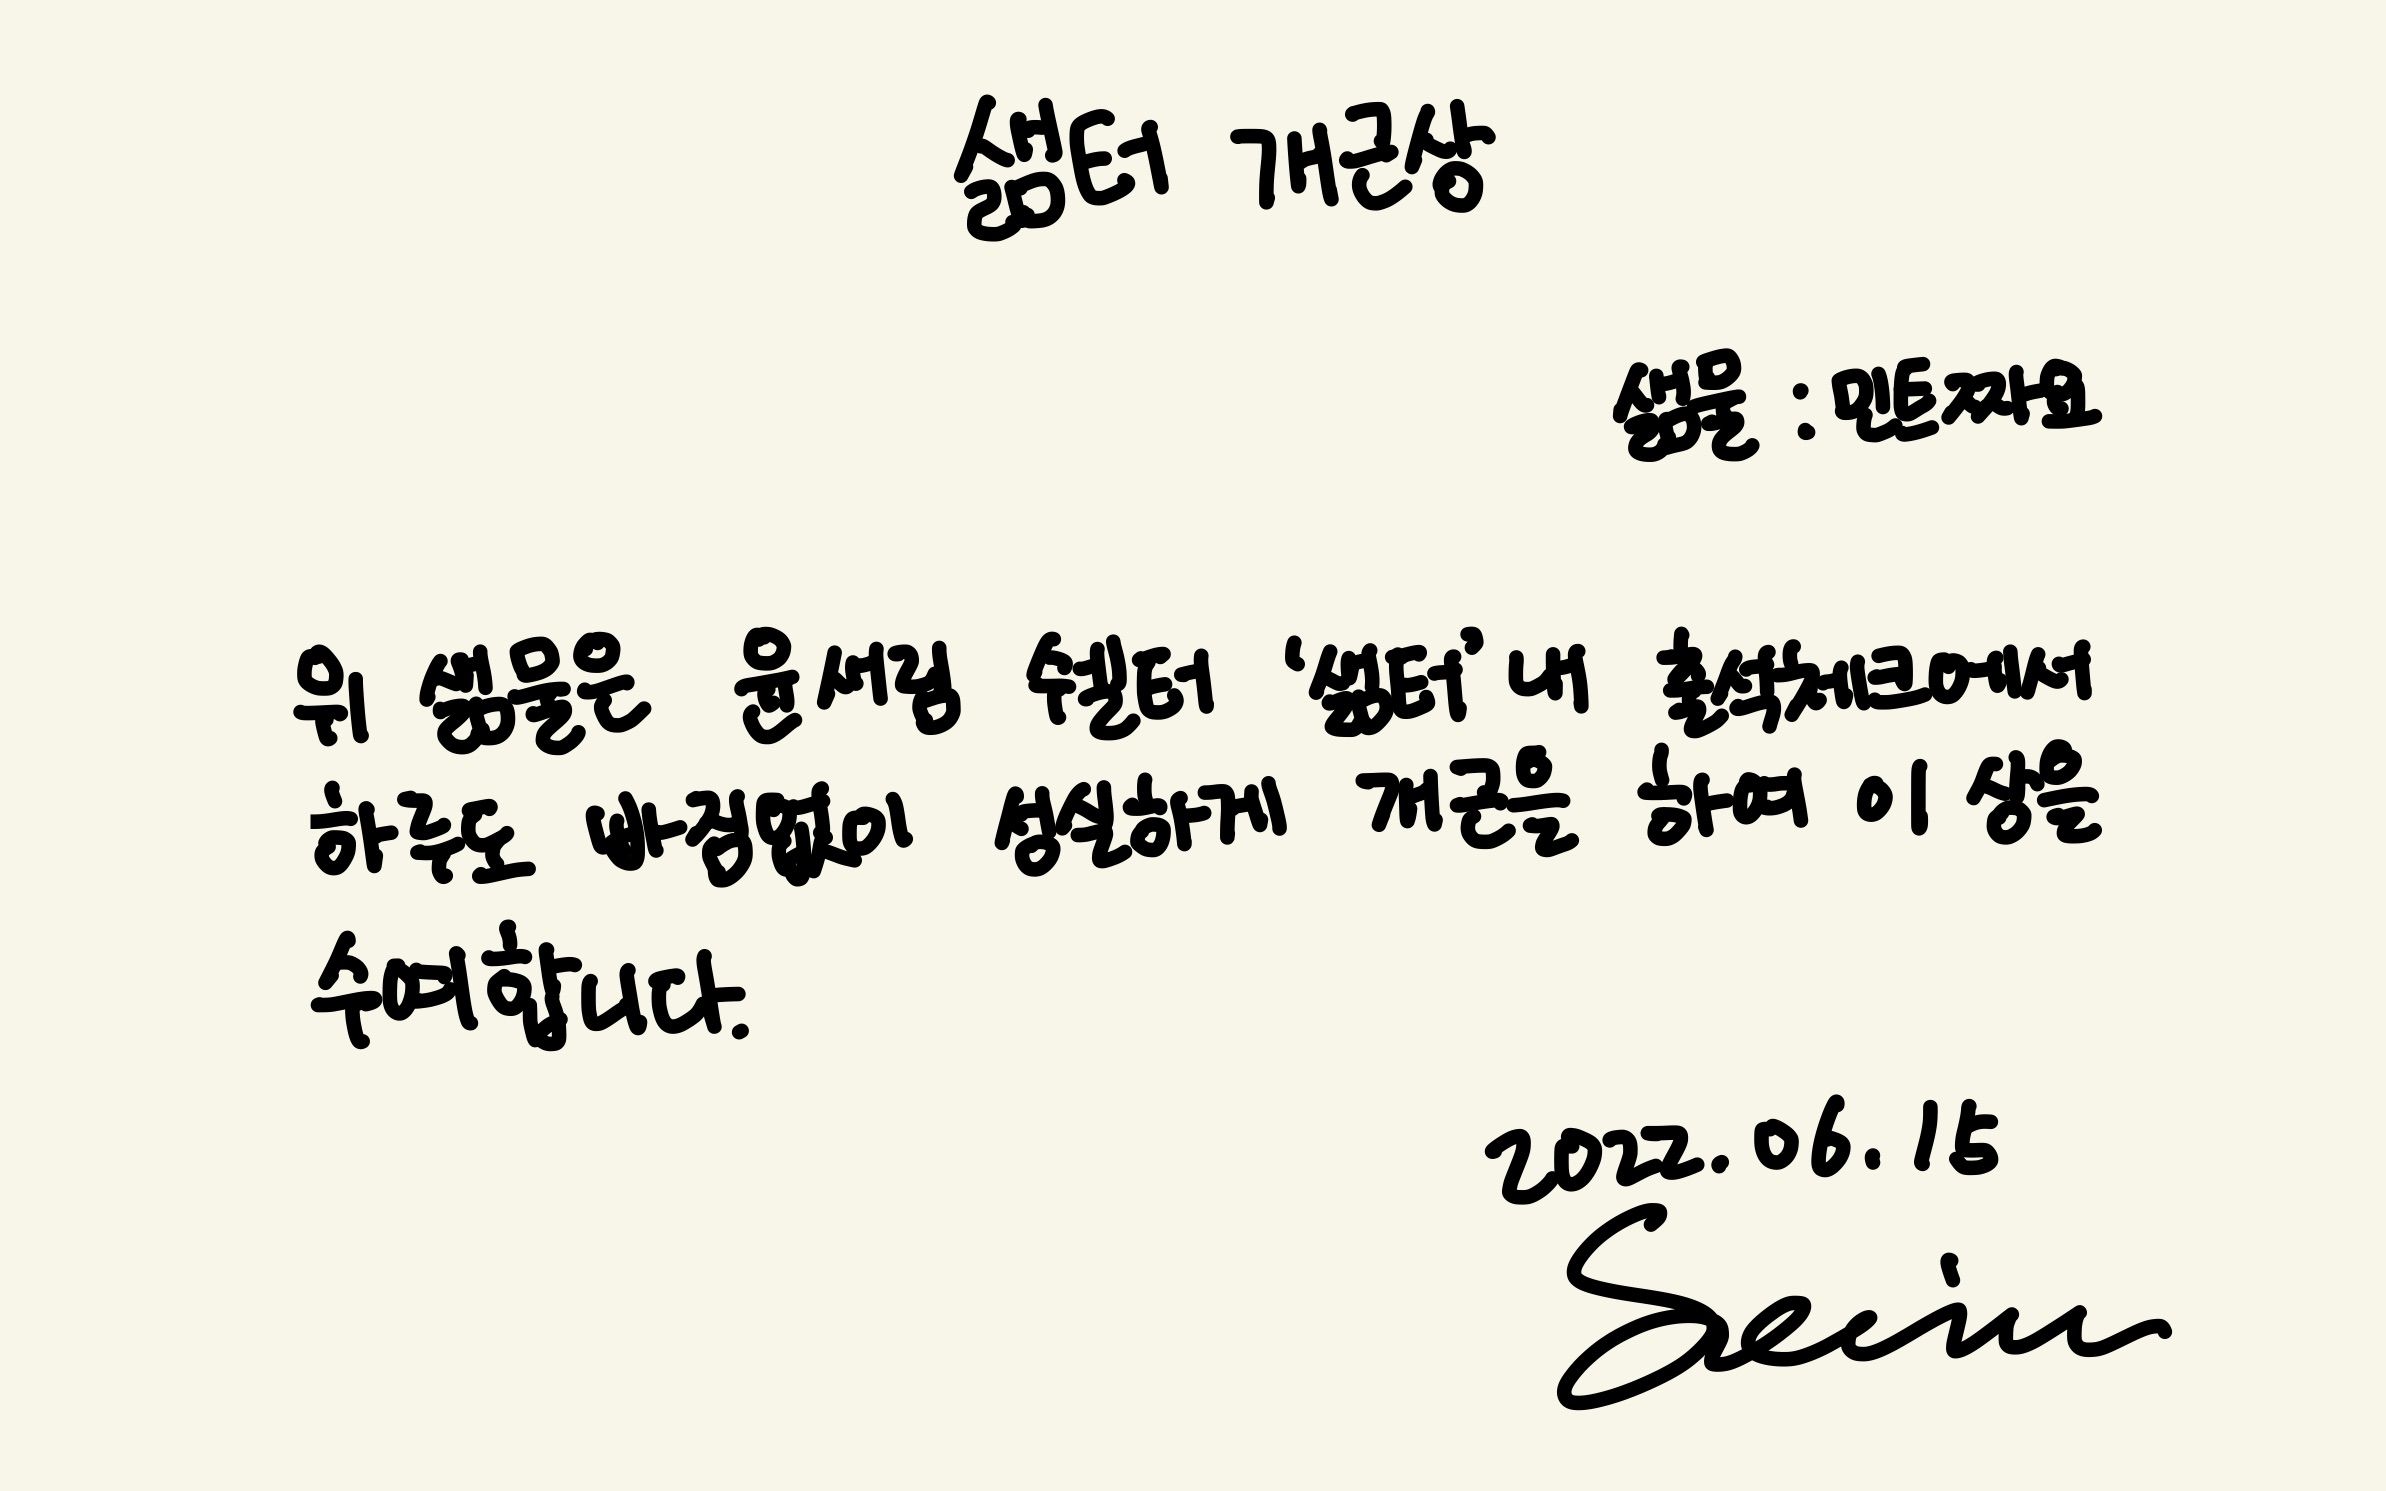 샒터 개근상
샒물 : 민트짜요
위 샒물은 윤세림 쉘터 '샒터' 내 출석체크에서
하루도 빠짐없이 성실하게 개근을 하여 이 상을
수여합니다.
2022.06.15